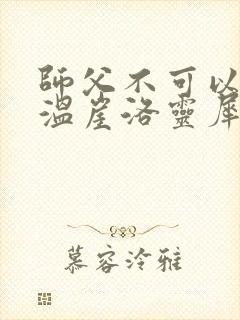 師父不可以
溫崖洛靈犀
慕容泠雅